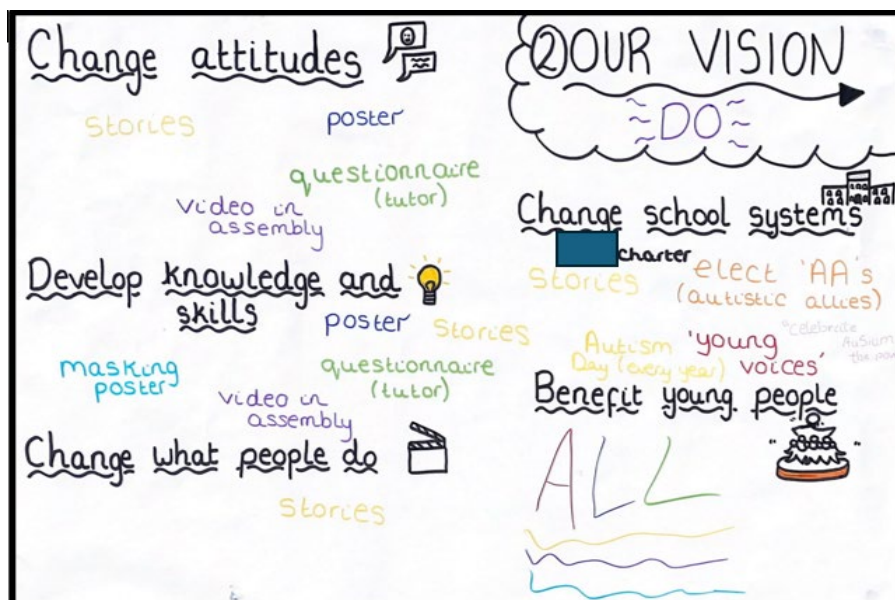 Change attitudes
stories
poster
questionnaire
(tutor)
video in
assembly
Develop knowledge and
skills
poster
stories
masking
poster
questionnaire
(tutor)
video in
assembly
Change what people do
stories
② OUR VISION
DO
Change school systems
charter
stories
elect 'AA's
(autistic allies)
Autism
Day (every year)
'young
voices'
"celebrate
Benefit young people
ALL